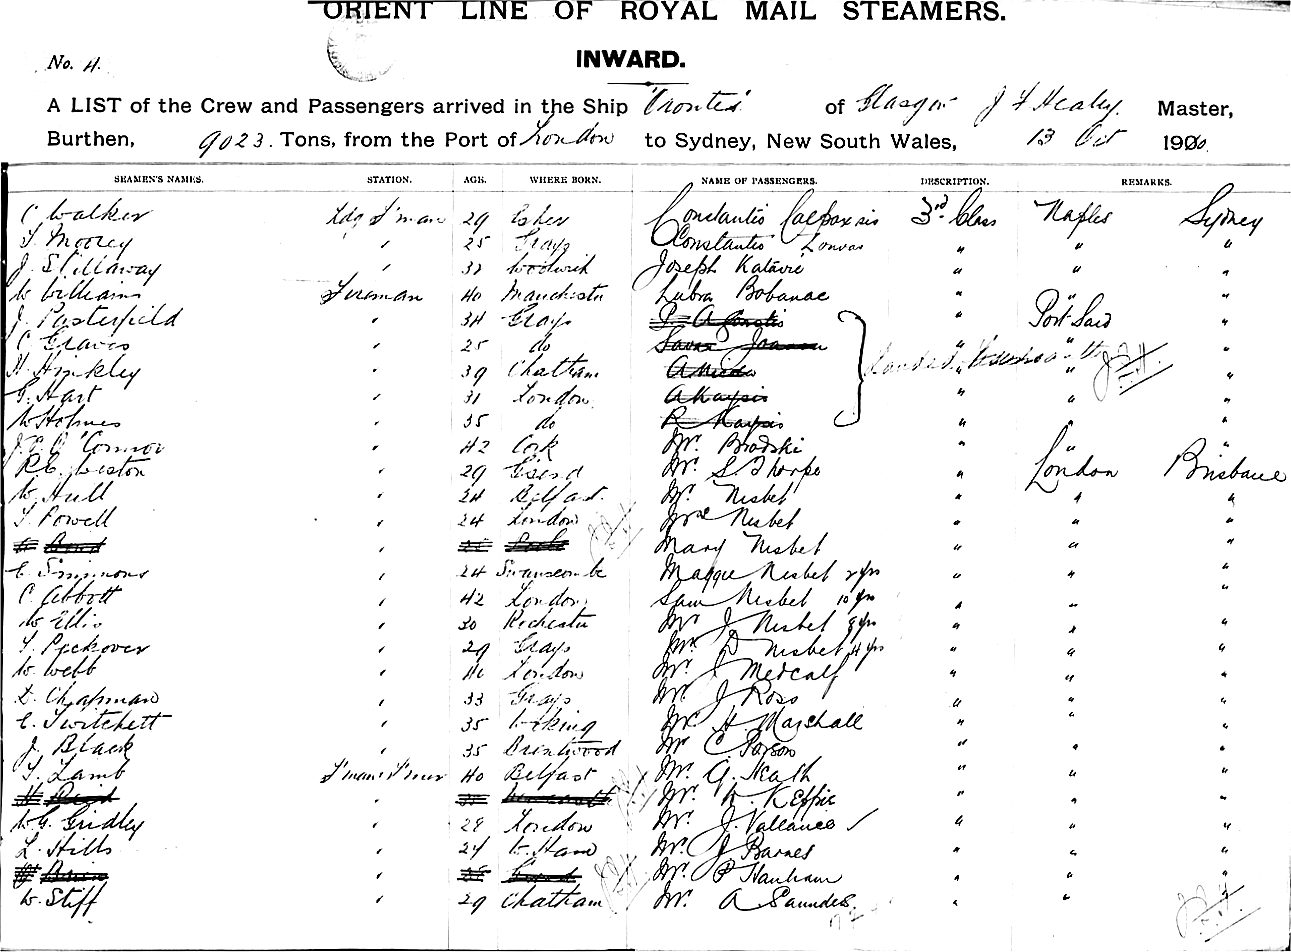 ORIENT LINE OF ROYAL MAIL STEAMERS.
No. 4.
INWARD.
A LIST of the Crew and Passengers arrived in the Ship "Orontes" of Glasgow J F Healey. Master,
Burthen, 9023. Tons, from the Port of London to Sydney, New South Wales, 13 Oct 1906.
SEAMEN'S NAMES. STATION. AGE. WHERE BORN. NAME OF PASSENGERS. DESCRIPTION. REMARKS.
C Walker Ldg F'man 29 Esher Constantis 3rd Class Naples Sydney
T. Moorey " 25 Grays Constantis " " "
J. Stillaway " 32 Woolwich Joseph Katavic " " "
W Williams Fireman 40 Manchester Lubra Bobanac " " "
J. Pasterfield " 34 Grays " Port Said "
C Graves " 25 do " " "
H. Hinkley " 39 Chatham Landed " "
G. Hart " 31 London " " "
W Holmes " 35 do R Kaysis " "
J. C. O'Connor " 42 Cork Mr. Brodski " " "
R C. Weston " 29 G'send Mr. S Thorpe " London Brisbane
W. Hull " 24 Belfast. Mr. Nisbet " " "
T. Powell " 24 London Mrs Nisbet " " "
Bond " Mary Nisbet " " "
C Simmons " 24 Swanscombe Maggie Nisbet 2 yrs " " "
C Abbott " 42 London Sam Nisbet 10 yrs " " "
W Ellis " 30 Rochester Mr. J Nisbet 8 yrs " " "
T. Peckover " 29 Grays Mr. D Nisbet 4 yrs " " "
W. Webb " 40 London Mr. J Medcalf " " "
D. Chapman " 33 Grays Mr. J Ross " " "
C. Twitchett " 35 Woking Mr H Marshall " " "
J. Black " 35 Brentwood Mr C Parson " " "
T. Lamb F'man & T'mer 40 Belfast Mr. G. Heath " " "
H " Mr. Keppie " " "
W G. Gridley " 28 London Mr. J. Vallance " " "
L. Hills " 24 W. Ham Mr. J Barnes " " "
" Mr. P Hanham " " "
W. Stiff " 29 Chatham Mr. A Saunders. " "